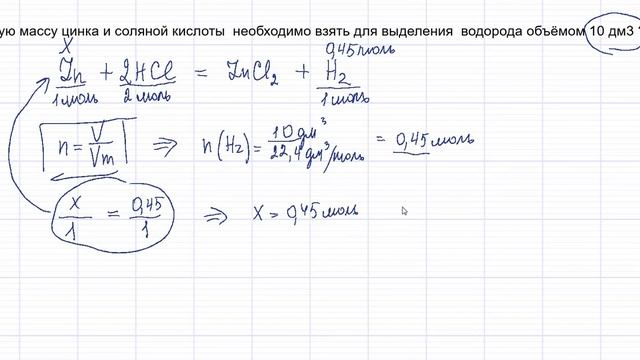 ую массу цинка и соляной кислоты необходимо взять для выделения водорода объёмом 10 дм3 ?
X 0,45 моль
Zn + 2HCl = ZnCl₂ + H₂
1 моль 2 моль 1 моль
n = V/Vm ⇒ n(H₂) = 10 дм³ / 22,4 дм³/моль = 0,45 моль
x/1 = 0,45/1 ⇒ x = 0,45 моль